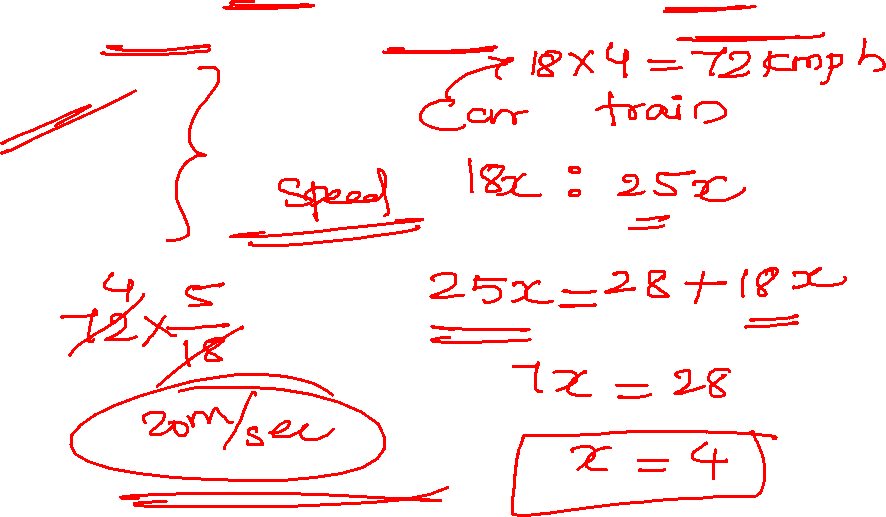 18×4=72kmph
Car train
Speed 18x : 25x
25x=28+18x
7x=28
x=4
4
72×5/18
20m/sec